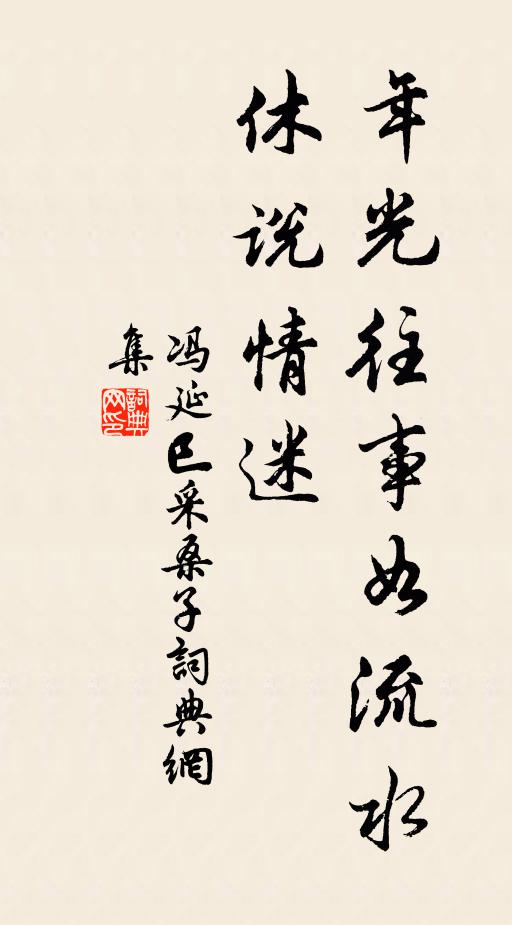 年光往事如流水
休说情迷
冯延巳采桑子詞典網
集
詞典
网印